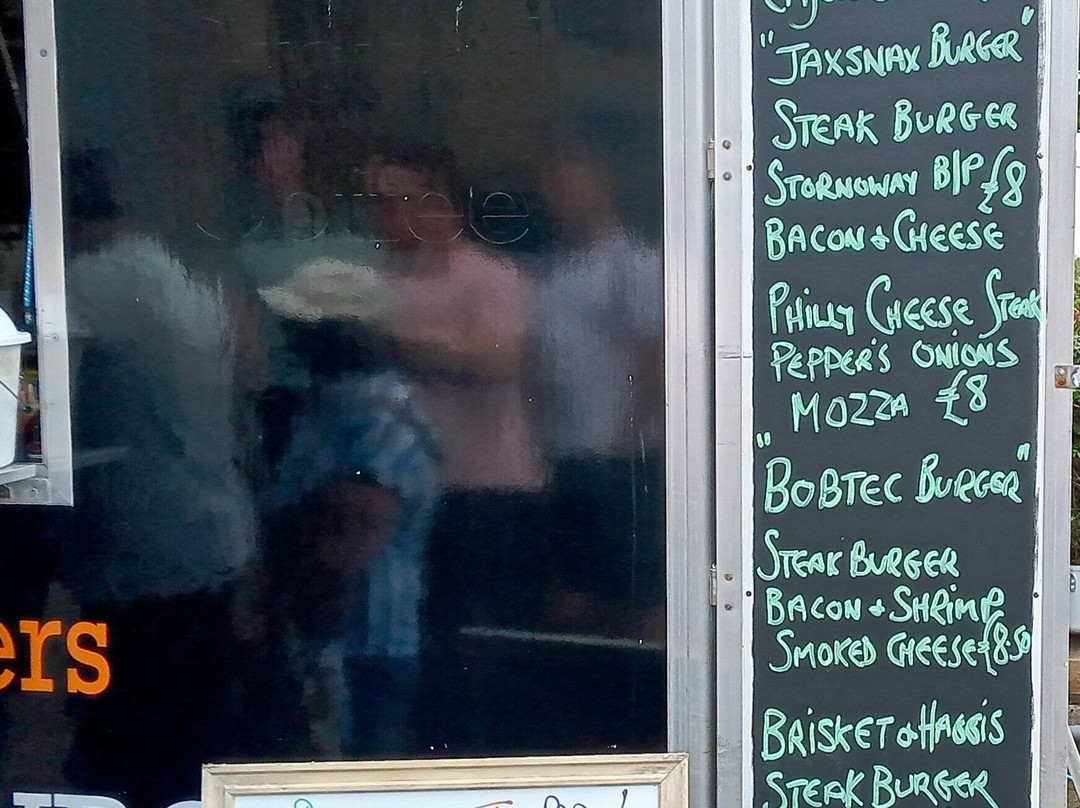 Coffee
ers
"JAXSNAX BURGER"
STEAK BURGER
STORNOWAY B/P £8
BACON & CHEESE
PHILLY CHEESE STEAK
PEPPER'S ONIONS
MOZZA £8
"BOBTEC BURGER"
STEAK BURGER
BACON & SHRIMP
SMOKED CHEESE £8.50
BRISKET & HAGGIS
STEAK BURGER